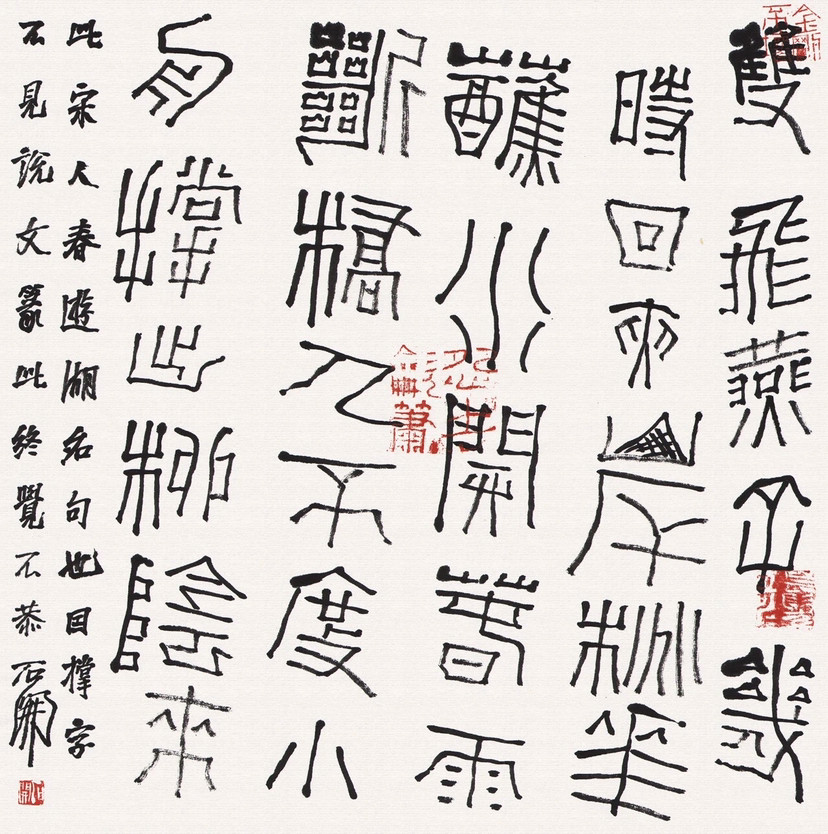 雙飛燕子幾
時回夾岸桃華
蘸水開春雨
斷橋人不度小
舟撐出柳陰來
此宋人春遊湖名句也因撐字
不見說文篆此終覺不恭石開